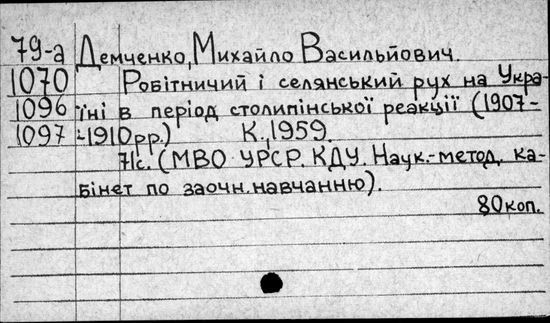 79-а Демченко, Михайло Васильйович.
1070 Робітничий і селянський рух на Укра-
1096 їні в період столипінської реакції (1907-
1097 -1910рр.) К.,1959.
71с. (МВО УРСР. КДУ. Наук.-метод. ка-
бінет по заочн. навчанню).
80коп.